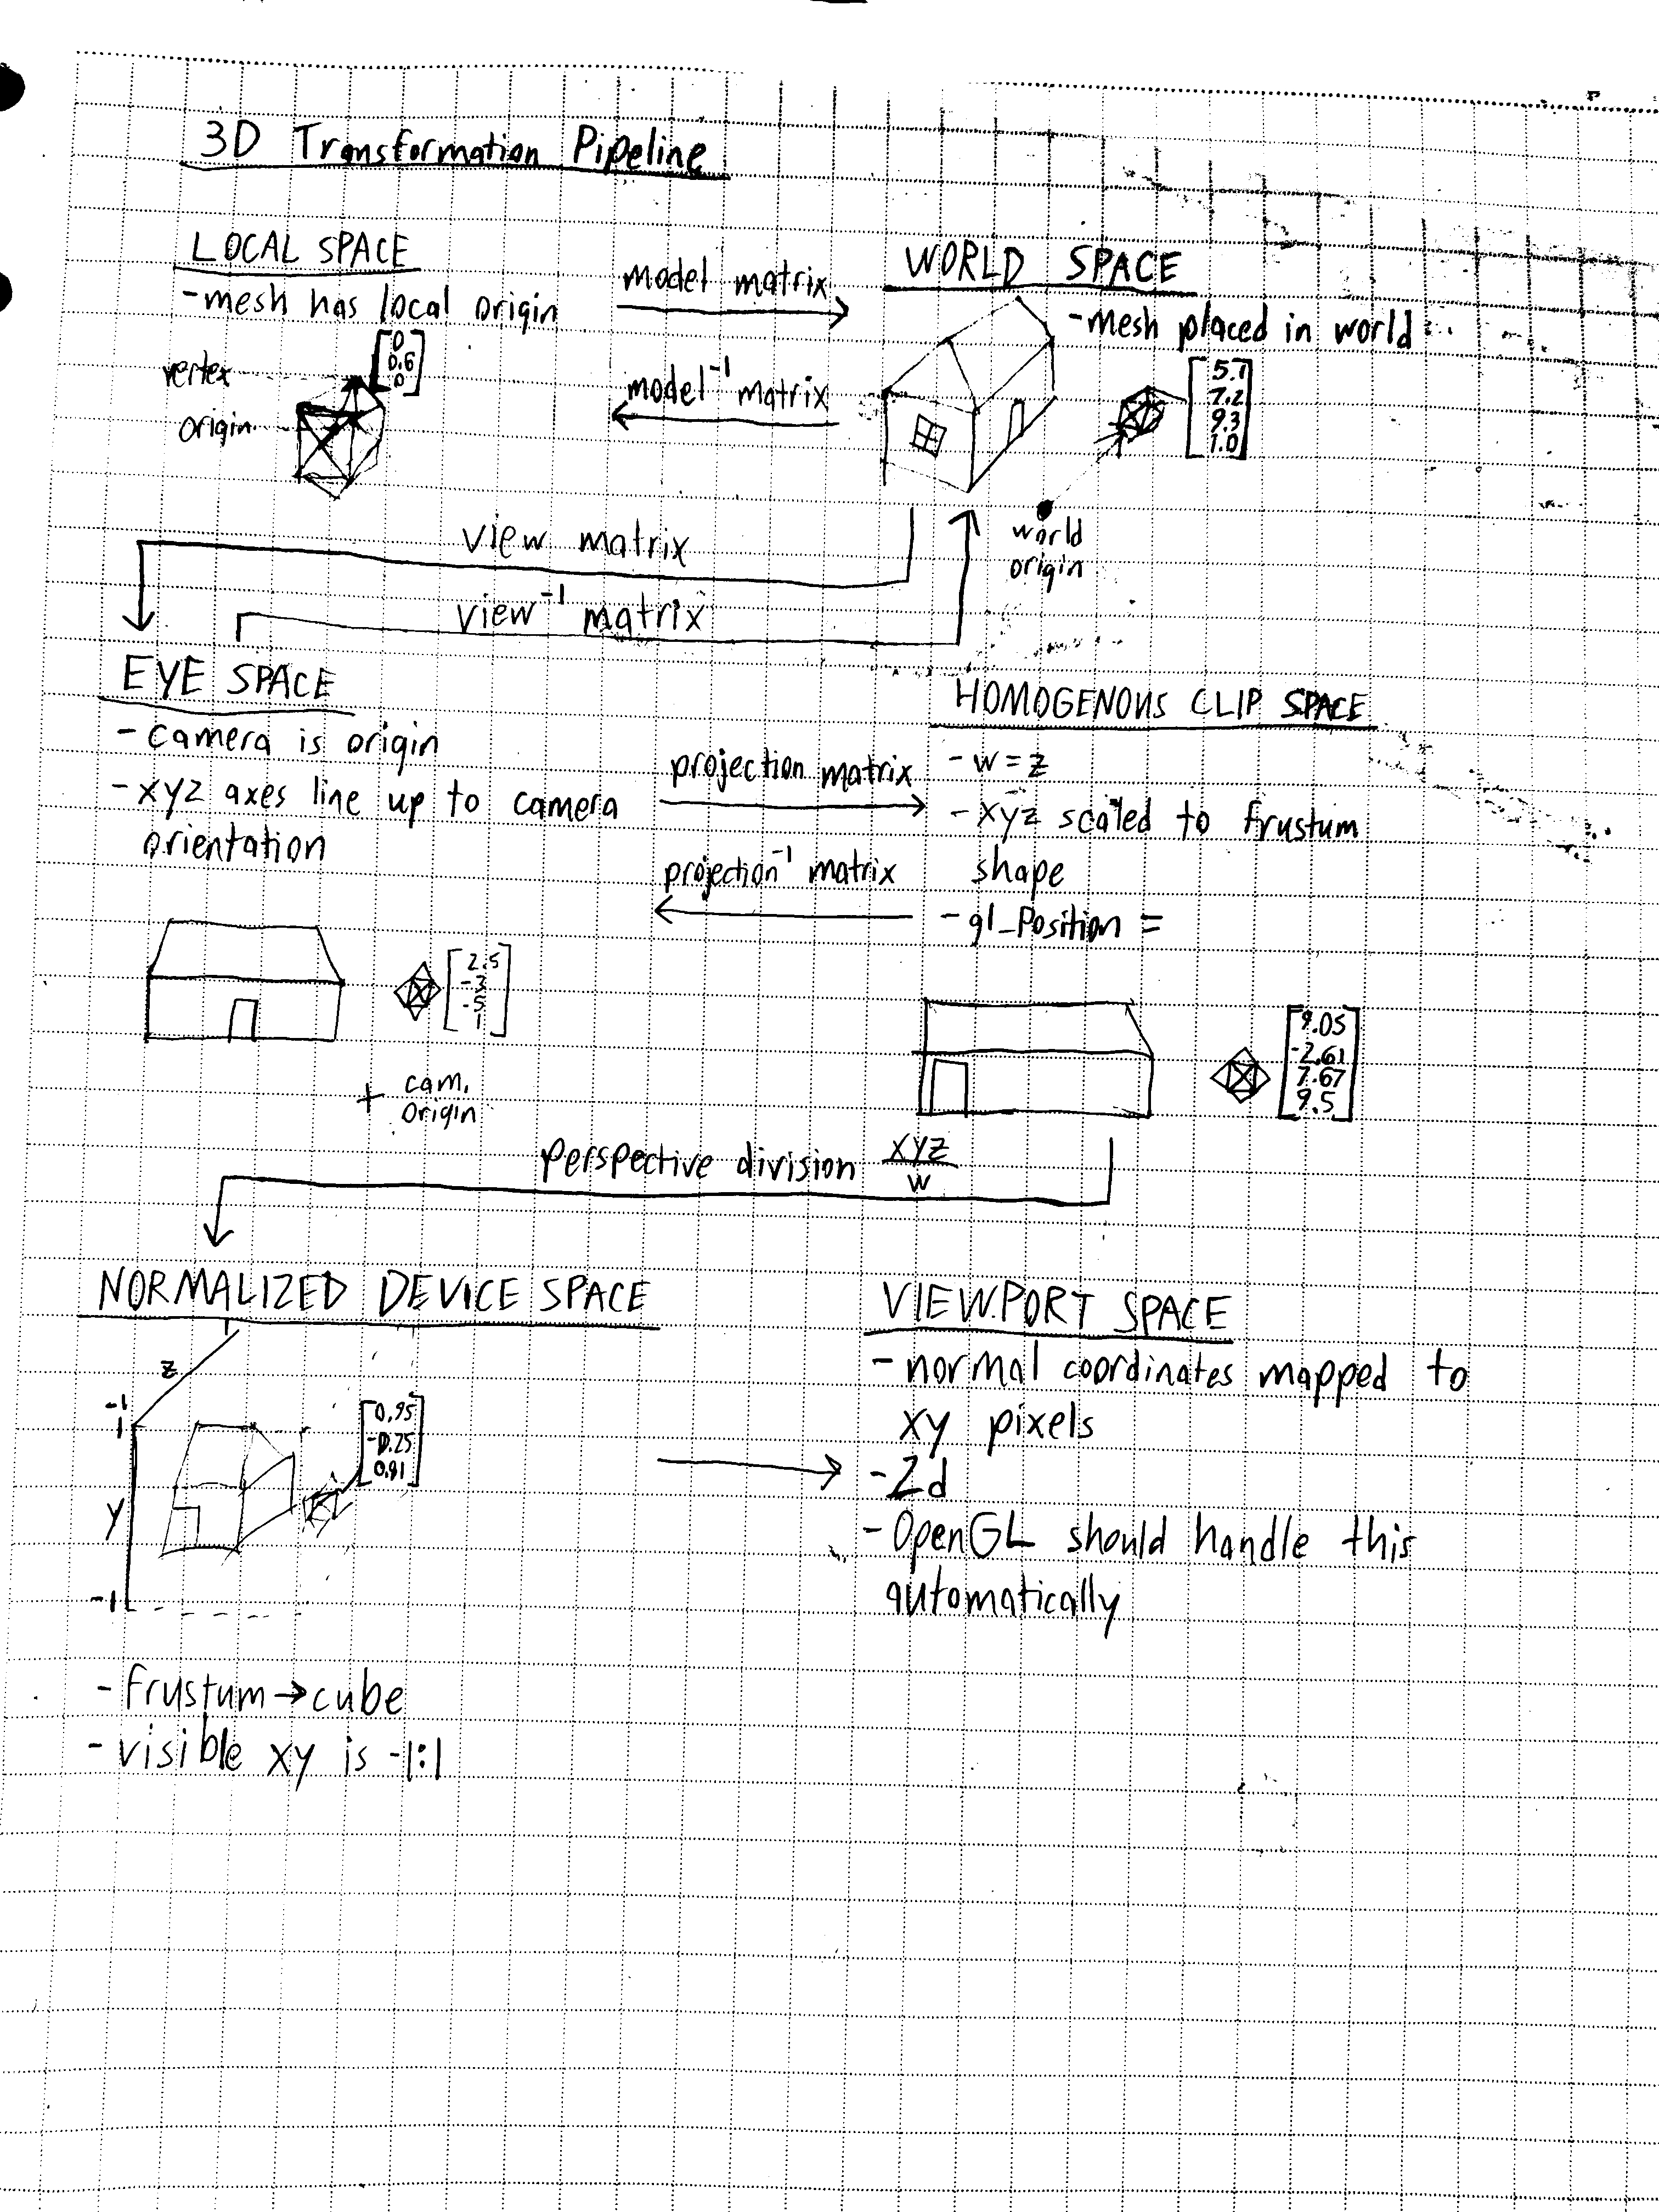 3D Transformation Pipeline
LOCAL SPACE
-mesh has local origin
vertex
origin
[0
0.6
0]
model matrix
model⁻¹ matrix
WORLD SPACE
-mesh placed in world
[5.1
7.2
9.3
1.0]
world
origin
view matrix
view⁻¹ matrix
EYE SPACE
- camera is origin
- xyz axes line up to camera
orientation
[2.5
-3
-5
1]
+ cam.
origin
projection matrix
projection⁻¹ matrix
HOMOGENOUS CLIP SPACE
- w = z
- xyz scaled to frustum
shape
- gl_Position =
[9.05
-2.61
7.67
9.5]
perspective division xyz/w
NORMALIZED DEVICE SPACE
z
-1
1
y
-1
[0.95
-0.25
0.81]
- frustum → cube
- visible xy is -1:1
VIEWPORT SPACE
- normal coordinates mapped to
xy pixels
- 2d
- OpenGL should handle this
automatically